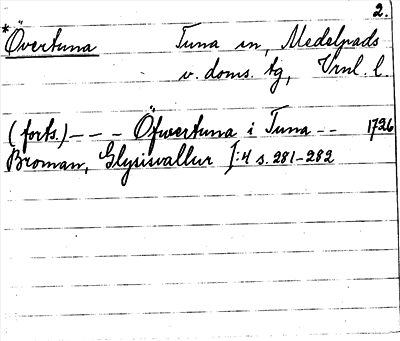 2.
*Övertuna Tuna sn, Medelpads
v. doms. tg, Vrnl. l.
(forts.) - - - Öfwertuna i Tuna - - 1726
Broman, Glysisvallur I:4 s. 281-282